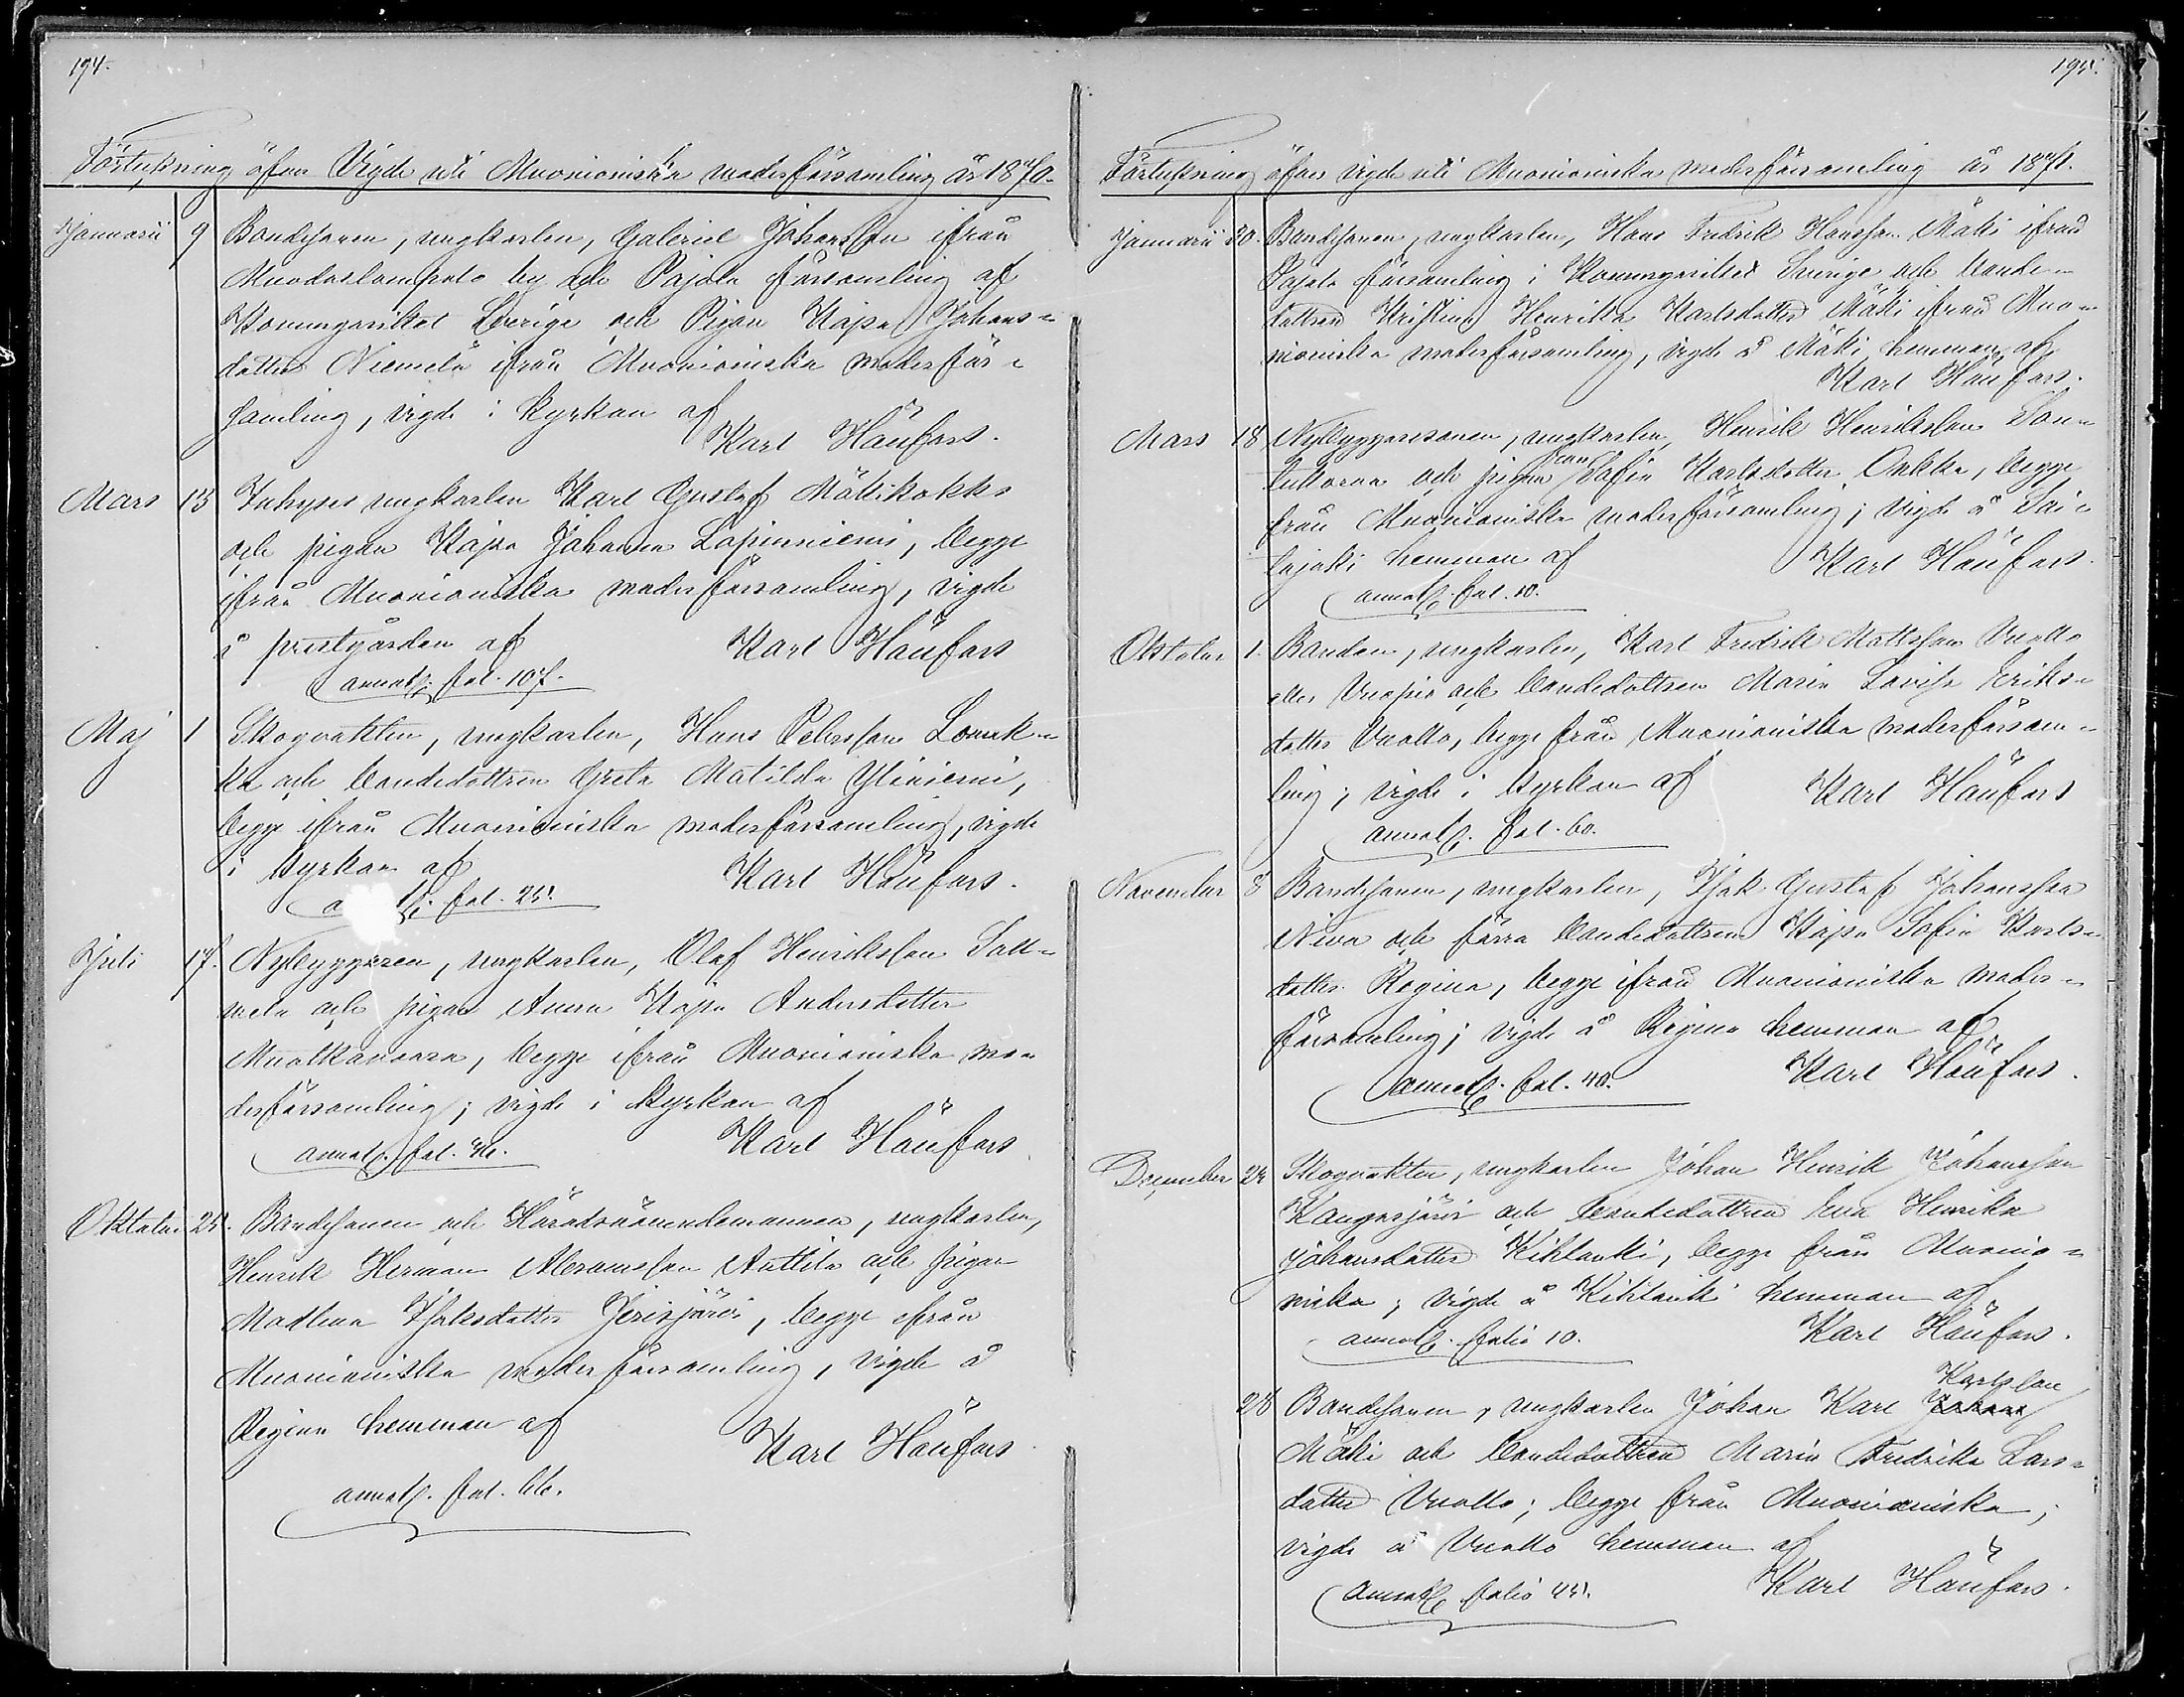 194.
Förtekning öfver Vigde uti Muonioniska moderförsamling år 1870.
Januarii 9 Bondesonen, ungkarlen, Gabriel Johansson ifrån
Muodoslompolo by och Pajala församling af
Konungariket Sverige och Pigan Kajsa Johans-
dotter Niemelä ifrån Muonioniska moderför-
samling, vigde i kyrkan af
Karl Hänfors.
Mars 13 Inhyses ungkarlen Karl Gustaf Mäkikokko
och pigan Kajsa Johanna Lapinniemi, begge
ifrån Muonioniska moderförsamling, vigde
å prestgården af Karl Hänfors
annot. fol. 107.
Maj 1 Skogvakten, ungkarlen, Hans Petersson Lomak-
ka och bondedottren Greta Matilda Yliniemi,
begge ifrån Muonioniska moderförsamling, vigde
i kyrkan af Karl Hänfors.
fol. 25.
Juli 17. Nybyggaren, ungkarlen, Olof Henriksson Salk-
mela och pigan Anna Kajsa Andersdotter
Muotkavaara, begge ifrån Muonioniska mo-
derförsamling; vigde i kyrkan af
annot. fol. 36. Karl Hänfors
Oktober 25. Bondesonen och Häradsnämndemannen, ungkarlen,
Henrik Herman Abramsson Anttila och pigan
Madlena Isaksdotter Jerisjärvi, begge ifrån
Muonioniska moderförsamling, vigde å
Regina hemman af Karl Hänfors
annot. fol. 66.
195.
Förtekning öfver vigde uti Muonioniska moderförsamling år 1871.
Januarii 20. Bondesonen, ungkarlen, Hans Fredrik Hansson Mäki ifrån
Pajala församling i Konungariket Sverige och bonde-
dottren Kristina Henrika Karlsdotter Mäki ifrån Muo-
nioniska moderförsamling, vigde å Mäki hemman af
Karl Hänfors.
Mars 18 Nybyggaresonen, ungkarlen, Henrik Henriksson
och pigan Sofia Karlsdotter, begge
från Muonioniska moderförsamling; vigde å
hemman af Karl Hänfors.
annot. fol. 10.
Oktober 1. Bonden, ungkarlen, Karl Fredrik Mattsson Vuollo
eller Vuopio och bondedottren Maria Lovisa Eriks-
dotter Vuollo, begge från Muonioniska moderförsam-
ling; vigde i kyrkan af Karl Hänfors
annot. fol. 60.
November 8 Bondesonen, ungkarlen, Isak Gustaf Johansson
Niva och förra bondedottren Kajsa Sofia Karls-
dotter Regina, begge ifrån Muonioniska moder-
församling; vigde å Regina hemman af
annot. fol. 40. Karl Hänfors.
December 24 Skogvakten, ungkarlen Johan Henrik Johansson
Kangosjärvi och bondedottren Eva Henrika
Johansdotter Kihlanki, begge från Muonio-
niska; vigde å Kihlanki hemman af
annot. folio 10. Karl Hänfors.
Karlsson
28 Bondesonen, ungkarlen Johan Karl Johans
Mäki och bondedottren Maria Fredrika Lars-
dotter Vuollo; begge från Muonioniska;
vigde å Vuollo hemman af
annot. folio 45. Karl Hänfors.